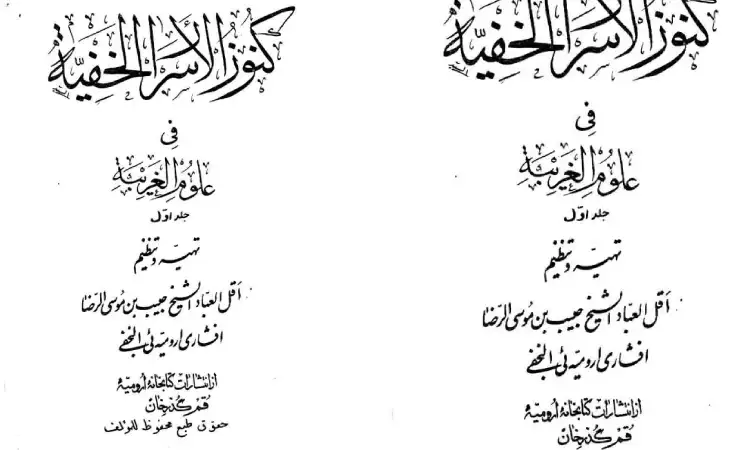 كنوز الأسرار الخفية
في
علوم الغريبة
جلد اول
تهيه و تنظيم
أقل العباد الشيخ حبيب بن موسى الرضا
افشاري اروميه ئي النجفي
از انتشارات كتابخانه اروميه
قم گذرخان
حقوق طبع محفوظ للمؤلف
كنوز الأسرار الخفية
في
علوم الغريبة
جلد اول
تهيه و تنظيم
أقل العباد الشيخ حبيب بن موسى الرضا
افشاري اروميه ئي النجفي
از انتشارات كتابخانه اروميه
قم گذرخان